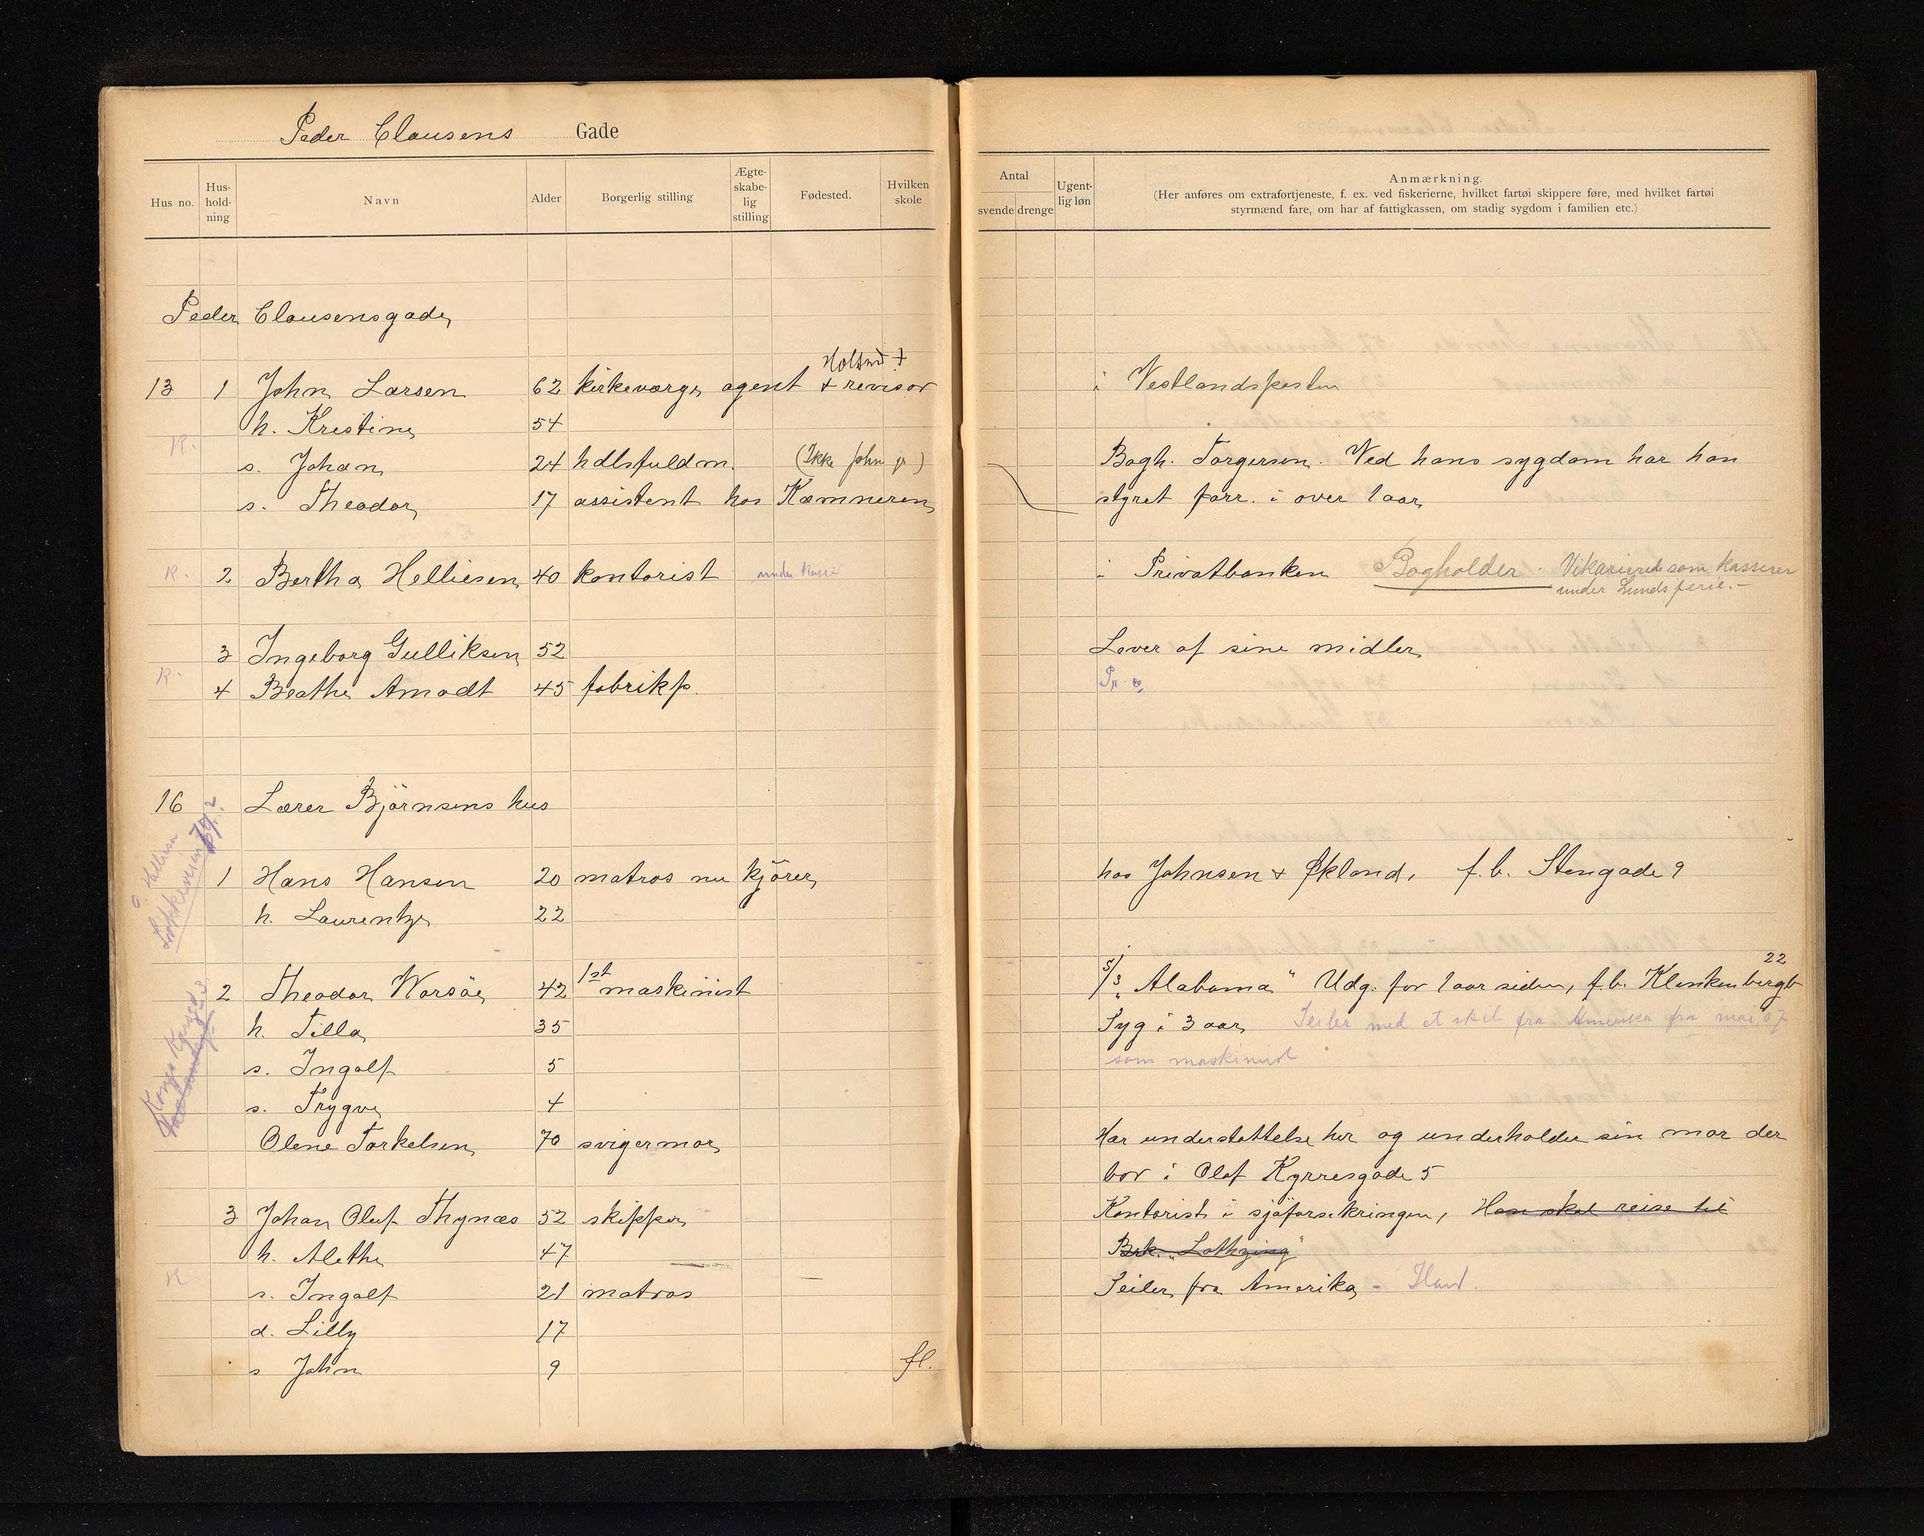 Peder Clausens Gade
Hus no. Hus-hold-ning Navn Alder Borgerlig stilling Ægte-skabe-lig stilling Fødested. Hvilken skole
Antal svende drenge Ugent-lig løn Anmærkning.
(Her anføres om extrafortjeneste, f. ex. ved fiskerierne, hvilket fartøi skippere føre, med hvilket fartøi
styrmænd fare, om har af fattigkassen, om stadig sygdom i familien etc.)
Peder Clausensgade
13 1 John Larsen 62 kirkeværge agent + revisor i Vestlandsposten
h. Kristine 54
R.
s. Johan 24 hdlsfuldm. (Ikke John jr) Bogh. Torgersen. Ved hans sygdom har han
s. Theodor 17 assistent hos Kæmneren styret forr. i over 1 aar
R. 2 Bertha Helliesen 40 kontorist i Privatbanken Bogholder. Vikarierede som kasserer
under Lunds ferie.-
3 Ingeborg Gulliksen 52 Lever af sine midler
R.
4 Beathe Amodt 45 fabrikp.
16 Lærer Björnsens hus
1 Hans Hansen 20 matros nu kjörer hos Johnsen + Økland, f.b. Stengade 9
h. Laurentze 22
2 Theodor Worsöe 42 1st maskinist S/S "Alabama" Udg. for 1 aar siden, f.b. Klinkenbergb 22
h. Tilla 35 Syg i 3 aar Seiler med et skib fra Amerika fra mai 07
s. Ingolf 5 som maskinist
s. Trygve 4
Olene Torkelsen 70 svigermor Har understøttelse her og underholder sin mor der
bor i Olaf Kyrresgade 5
3 Johan Oluf Thynæs 52 skipper Kontorist i sjöforsikringen, Han skal reise til
h. Alethe 47 Brk. "Lothring"
R
s. Ingolf 21 matros Seiler fra Amerika -
d. Lilly 17
s John 9 fl.